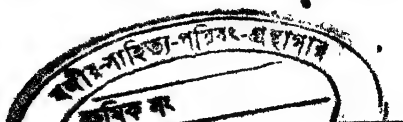 বঙ্গীয়-সাহিত্য-পরিষৎ-গ্রন্থাগার
ক্রমিক নং